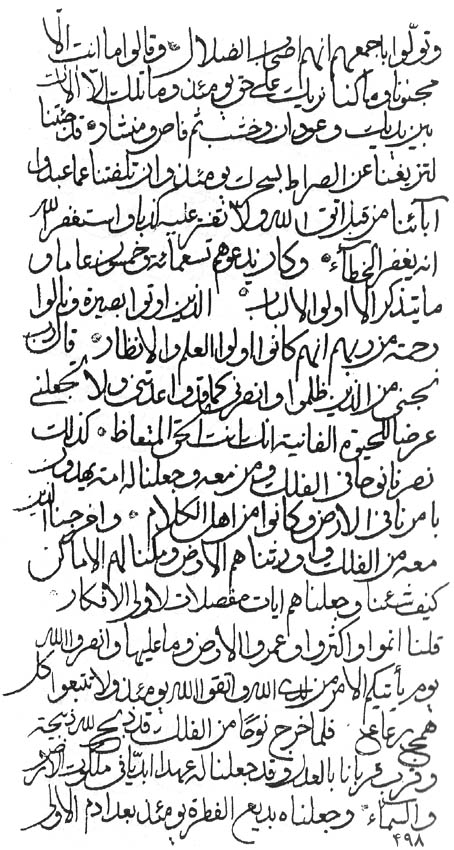 وتولّوا باجمعهم انهم اصحاب الضلال * وقالوا ما انت الّا
مجنونا وما كنا نريك على حق يومئذ وما تلك الّا الايات
بين يديك وعود ان وخشب ثم قاص ومنشار * قد جئتنا
لتزيغنا عن الصراط بسحرك يومئذ وان تلفتنا عما عبدوا
آبائنا من قبل اتق الله ولا تفتر عليه كذبا واستغفر الله
انه يغفر الخطآء * وكان يدعوهم تسعمائة وخمسون عاما و
ما يتذكر الا اولوا الالباب * الذين اوتوا بصيرة ونالوا
رحمة من ربهم انهم كانوا اولوا العلم والانظار * قال رب
نجني من الذين ظلموا وانصرني كما قد واعدتني ولا تجعلني
عرضا للحيوة الفانية انك انت الحق المتعاظ * كذلك
نصرنا نوحا في الفلك ومن معه وجعلناه امة يهدون
بامرنا في الارض وكانوا من اهل الكلام * واخرجنا الذين
معه من الفلك واورثناهم الارض ومكنا لهم الاماكن
كيف شئنا وجعلناهم ايات مفصلات لاولى الافكار
قلنا انموا واكثروا وعمروا الارض وما عليها وانصروا الله
يوم يأتيكم الامر من الله واتقوا الله يومئذ ولا تتبعوا كل
همج رعاع * فلما خرج نوحا من الفلك قد ذبح لله ذبيحة
وقرب قربانا بالعدل وقد جعلنا له عهدا ابديا في ملكوت الارض
والسمآء * وجعلناه بديع الفطرة يومئذ بعد ادم الاولى
٤٩٨